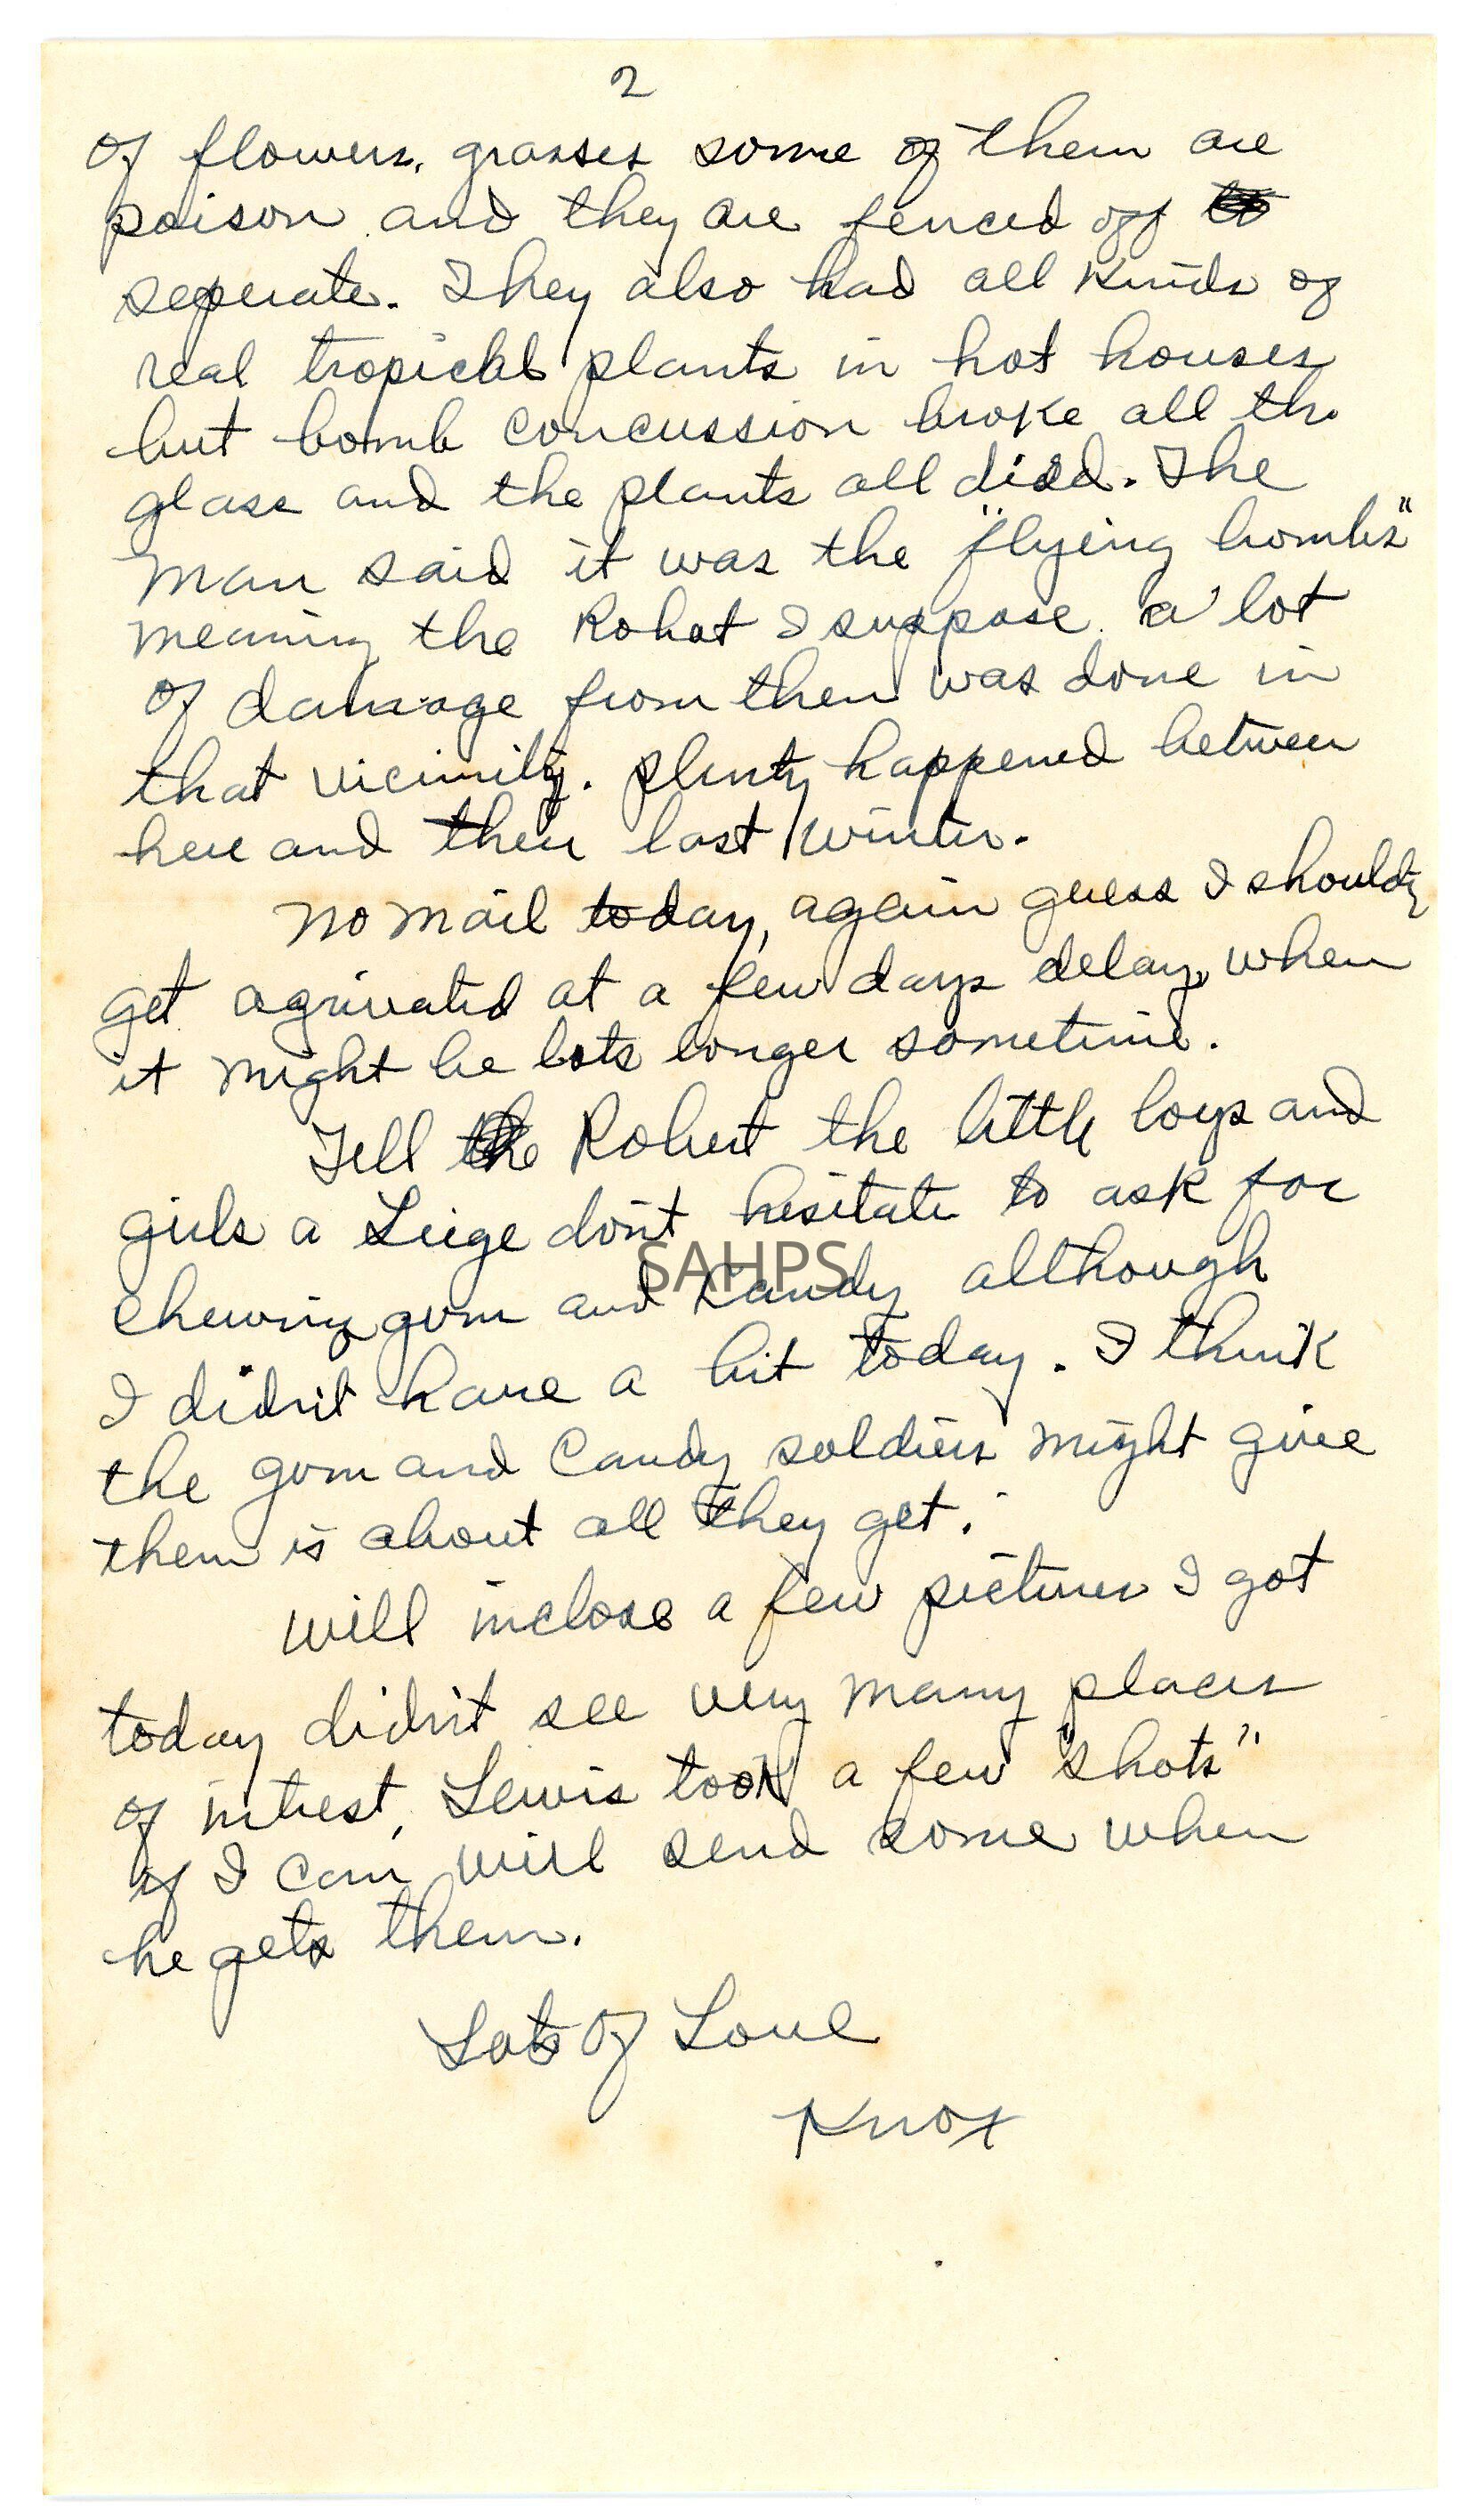 2
of flowers, grasses some of them are
poison and they are fenced off
seperate. They also had all kinds of
real tropical plants in hot houses
but bomb concussion broke all the
glass and the plants all died. The
man said it was the "flying bombs"
meaning the Robot I suppose. a lot
of damage from them was done in
that vicinity. plenty happened between
here and there last winter.
no mail today, again guess I should
get agrivated at a few days delay, when
it might be lots longer sometime.
Tell Robert the little boys and
girls a Liege don't hesitate to ask for
chewing gum and candy although
SAHPS
I didn't have a bit today. I think
the gum and candy soldiers might give
them is about all they get.
will inclose a few pictures I got
today didn't see very many places
of intrest, Lewis took a few "shots"
if I can will send some when
he gets them.
Lots of Love
Knox